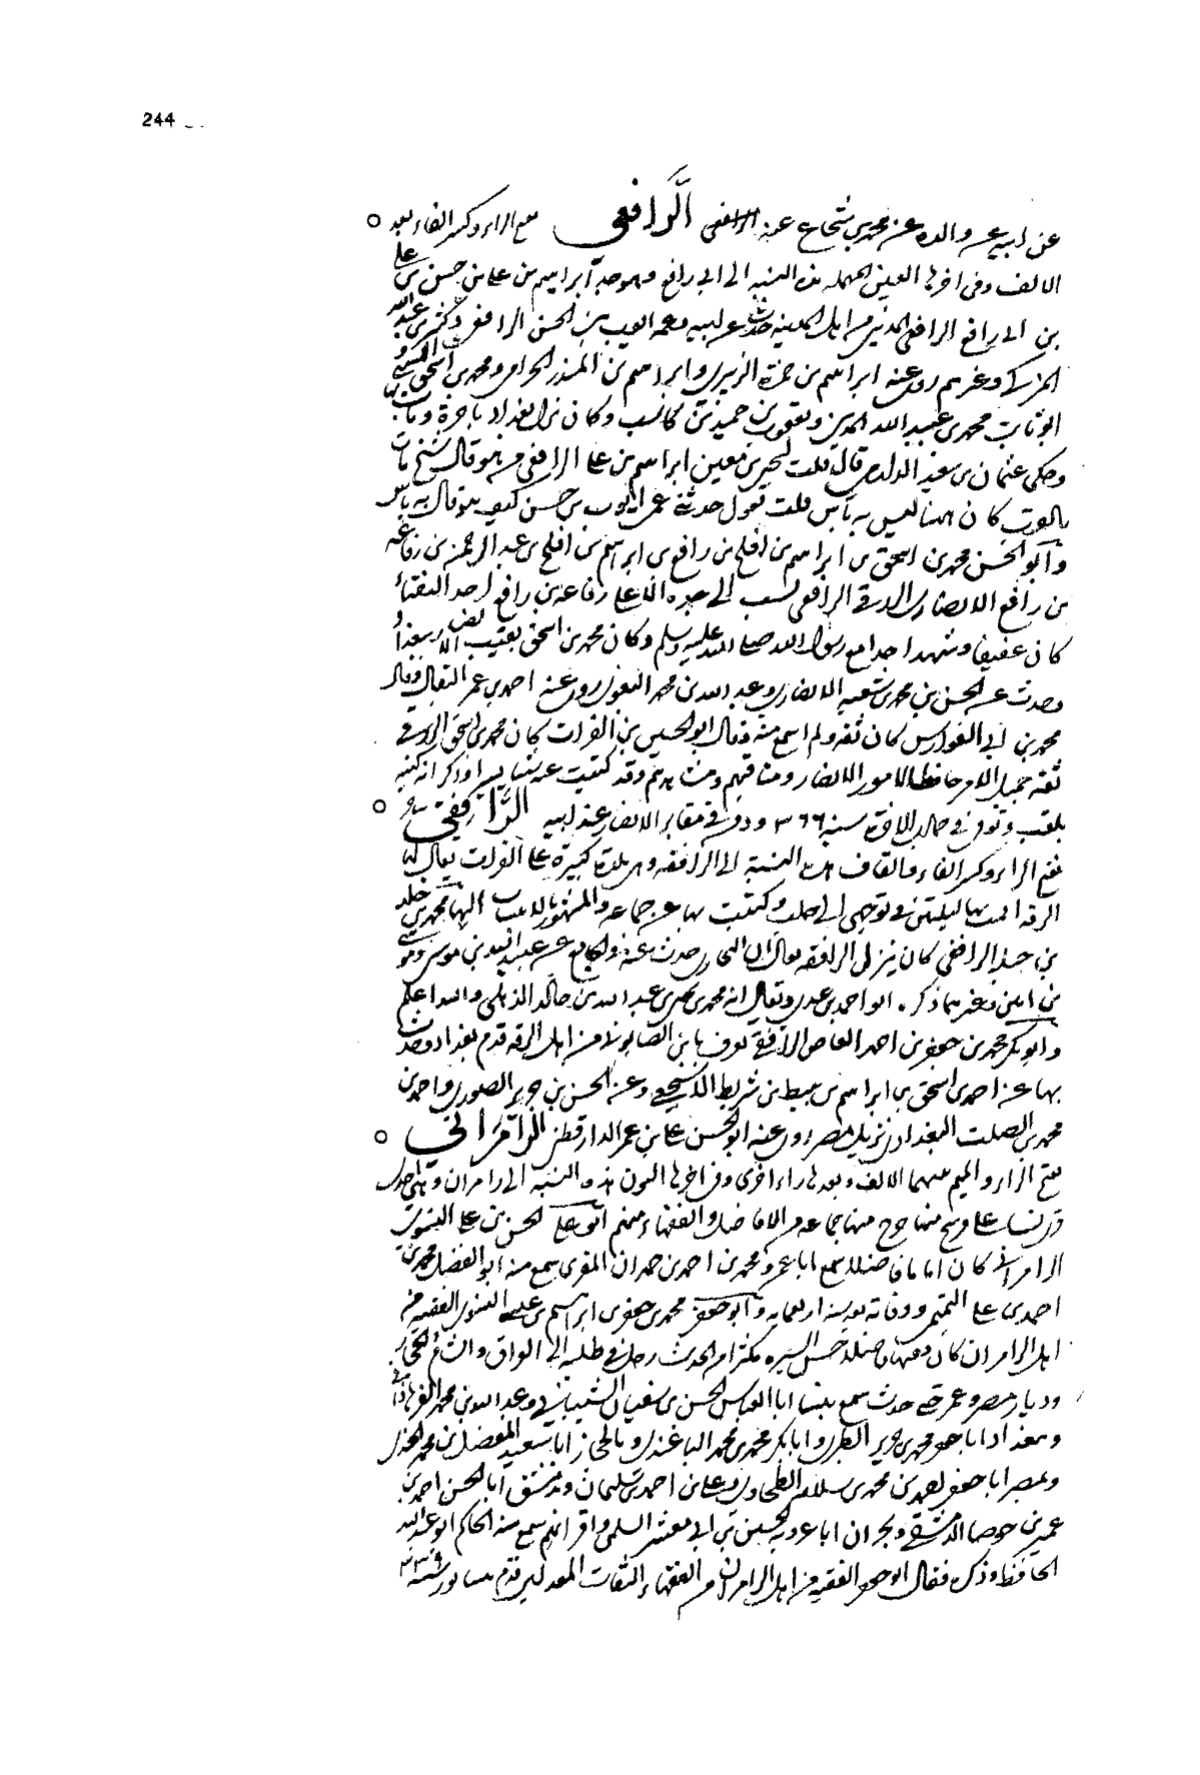 244
عن ابيه عن والده عن محمد بن شجاع عنه الرافعي الرَّافعي بفتح الراء وكسر الفاء بعد
الالف وفي اخرها العين المهملة هذه النسبة الى ابي رافع وهو جد ابراهيم بن علي بن حسن بن علي
بن ابي رافع الرافعي المدني من اهل المدينة حدث عن ابيه وعمه ايوب بن الحسن الرافعي وكثير بن عبد الله
المزني وغيرهم روى عنه ابراهيم بن حمزة الزبيري وابراهيم بن المنذر الحزامي ومحمد بن اسحق المسيبي و
ابو ثابت محمد بن عبيد الله المديني ويعقوب بن حميد بن كاسب وكان نزل بغداد باخرة ومات بها
وحكى عثمان بن سعيد الدارمي قال قلت ليحيى بن معين ابراهيم بن علي الرافعي من هو قال شيخ مات
بالقرب كان ههنا ليس به بأس قلت يقول حدثني عمي ايوب بن حسن كيف هو قال ليس به بأس
وابو الحسن محمد بن اسحق بن ابراهيم بن افلح بن رافع بن ابراهيم بن افلح بن عبد الرحمن بن رفاعة
بن رافع الانصاري الزرقي الرافعي نسب الى جده الاعلى رفاعة بن رافع احد النقباء
كان عقبيا وشهد احدا مع رسول الله صلى الله عليه وسلم وكان محمد بن اسحق نقيب الانصار ببغداد
وحدث عن الحسن بن محمد بن شعبة الانصاري وعبد الله بن محمد البغوي روى عنه احمد بن عمر البقال وقال
محمد بن ابي الفوارس كان ثقة ولم اسمع منه وقال ابو الحسن بن الفرات كان محمد بن اسحق الزرقي
ثقة جميل الامر حافظا لامور الانصار ومناقبهم ومشاهدهم وقد كتبت عنه شيئا يسيرا وذكر ان كتبه
تلفت وتوفي في جمادى الاخرة سنة ٣٦٦ ودفن في مقابر الانصار عند ابيه الرَّافقي
بفتح الراء وكسر الفاء والقاف هذه النسبة الى الرافقة وهي بلدة كبيرة على الفرات يقال لها
الرقة اقمت بها ليلتين في توجهي الى حلب وكتبت بها عن جماعة والمشهور بالانتساب اليها محمد بن خالد
بن جبلة الرافقي كان ينزل الرافقة يقال ان البخاري حدث عنه في الجامع عن عبيد الله بن موسى ومحمد بن موسى
بن اعين وغيرهما ذكره ابو احمد بن عدي ويقال انه محمد بن يحيى بن عبد الله بن خالد الذهلي والله اعلم
وابو بكر محمد بن جعفر بن احمد القاضي الرافقي يعرف بابن الصابوني من اهل الرقة قدم بغداد وحدث
بها عن احمد بن اسحق بن ابراهيم بن نبيط بن شريط الاشجعي وعن الحسن بن جرير الصوري واحمد بن
محمد بن الصلت البغدادي نزيل مصر روى عنه ابو الحسن علي بن عمر الدارقطني الرامَراني
بفتح الراء والميم بينهما الالف وبعدها راء اخرى وفي اخرها النون هذه النسبة الى رامران وهي احدى
قرى نسا على فرسخ منها خرج منها جماعة من الافاضل والفقهاء منهم ابو علي الحسن بن علي النسوي
الرامراني كان اماما فاضلا سمع ابا عمرو محمد بن احمد بن حمدان المقري سمع منه ابو الفضل محمد بن
احمد بن علي التميمي ووفاته بعد سنة اربعماية وابو جعفر محمد بن جعفر بن ابراهيم بن عيسى النسوي الفقيه من
اهل الرامران كان فقيها فاضلا حسن السيرة مكثرا من الحديث رحل في طلبه الى العراق والشام والحجاز
وديار مصر وعمر حتى حدث سمع بنسا ابا العباس الحسن بن سفيان الشيباني وعبد الله بن محمد الفرهاذاني
وببغداد ابا جعفر محمد بن جرير الطبري وابا بكر محمد بن محمد الباغندي وبالحجاز ابا سعيد المفضل بن محمد الجندي
وبمصر ابا جعفر احمد بن محمد بن سلامة الطحاوي وعلي بن احمد بن سليمان وبدمشق ابا الحسن احمد بن
عمير بن جوصا الدمشقي وبحران ابا عروبة الحسين بن ابي معشر السلمي واقرانهم سمع منه الحاكم ابو عبد الله
الحافظ وذكره فقال ابو جعفر الفقيه من اهل الرامران من الفقهاء الثقات المعدلين قدم نيسابور سنة